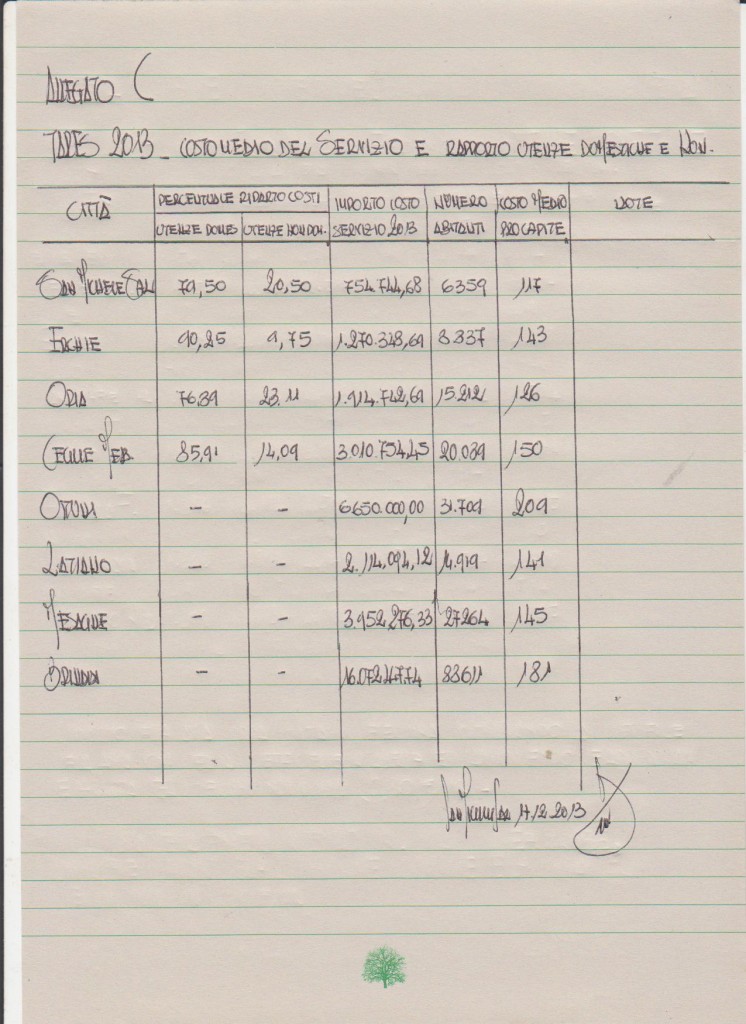 ALLEGATO C
TARES 2013 - COSTO MEDIO DEL SERVIZIO E RAPPORTO UTENZE DOMESTICHE E NON.
CITTÀ PERCENTUALE RIPARTO COSTI IMPORTO COSTO SERVIZIO 2013 NUMERO ABITANTI COSTO MEDIO PROCAPITE NOTE
UTENZE DOMES UTENZE NON DOM.
SAN MICHELE SAL. 79,50 20,50 754.744,68 6359 117
ERCHIE 90,25 9,75 1.270.348,69 8.837 143
ORIA 76,89 23.11 1.914.742,69 15.212 126
CEGLIE MES. 85,91 14,09 3.010.754,45 20.039 150
OSTUNI - - 6650.000,00 31.709 209
LATIANO - - 2.114.094,12 14.919 141
MESAGNE - - 3.952.276,33 27264 145
BRINDISI - - 16.072.147.74 88611 181
17.12.2013